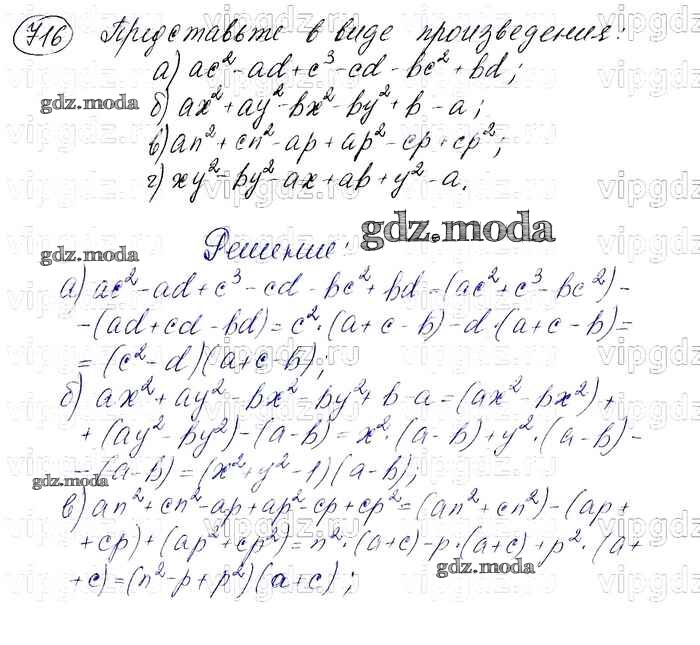 716 Представьте в виде произведения:
а) ac²-ad+c³-cd-bc²+bd;
gdz.moda
б) ax²+ay²-bx²-by²+b-a;
в) an²+cn²-ap+ap²-cp+cp²;
г) xy²-by²-ax+ab+y²-a.
gdz.moda
gdz.moda
Решение:
а) ac²-ad+c³-cd-bc²+bd=(ac²+c³-bc²)-
-(ad+cd-bd)=c²·(a+c-b)-d·(a+c-b)=
=(c²-d)(a+c-b);
б) ax²+ay²-bx²-by²+b-a=(ax²-bx²)+
+(ay²-by²)-(a-b)=x²·(a-b)+y²·(a-b)-
-(a-b)=(x²+y²-1)(a-b);
gdz.moda
в) an²+cn²-ap+ap²-cp+cp²=(an²+cn²)-(ap+
+cp)+(ap²+cp²)=n²·(a+c)-p·(a+c)+p²·(a+
gdz.moda
+c)=(n²-p+p²)(a+c);
vipgdz.ru